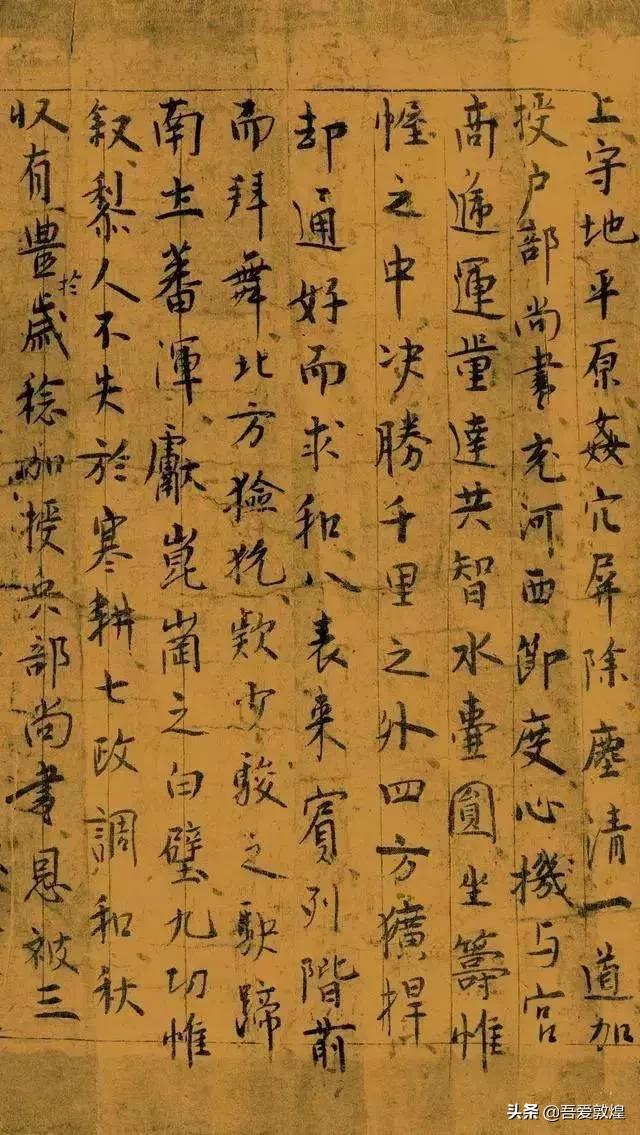 上守地平原姦宄屏除塵清一道加
授户部尚書充河西節度心機与宫
商遞運量達共智水壷圓坐籌帷
幄之中决勝千里之外四方獷捍
却通好而求和八表来賓列階前
而拜舞北方獫狁款少駿之駃蹄
南土蕃渾獻崑崗之白璧九功惟
叙黎人不失於寒耕七政調和秋
収有豊於歲稔加授兵部尚書恩被三
头条 @吾爱敦煌